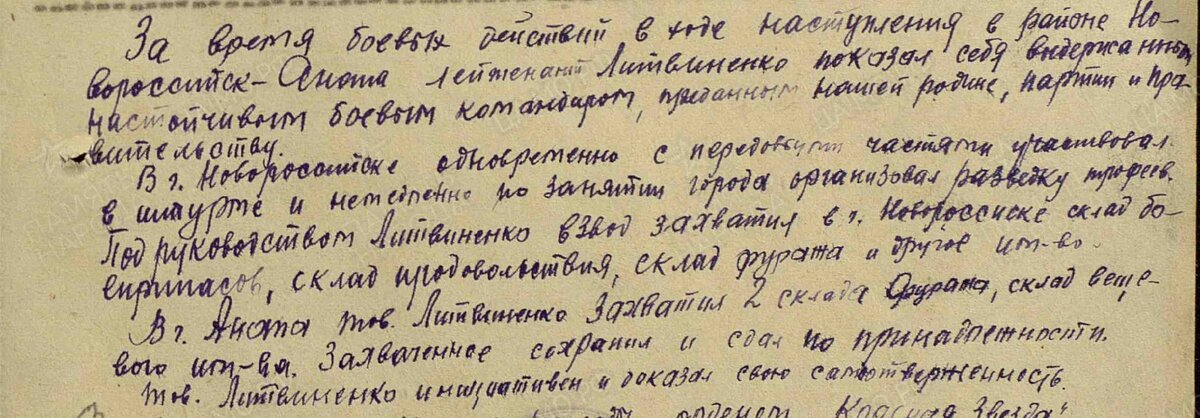 За время боевых действий в ходе наступления в районе Но-
вороссийск-Анапа лейтенант Литвиненко показал себя выдержанным
настойчивым боевым командиром, преданным нашей родине, партии и пра-
вительству.
В г. Новороссийске одновременно с передовыми частями участвовал
в штурме и немедленно по занятии города организовал разведку трофеев.
Под руководством Литвиненко взвод захватил в г. Новороссиске склад бо-
еприпасов, склад продовольствия, склад фуража и другое им-во.
В г. Анапа тов. Литвиненко захватил 2 склада фуража, склад веще-
вого им-ва. Захваченное сохранил и сдал по принадлежности.
Тов. Литвиненко инициативен и показал свою самоотверженность.
орденом "Красная Звезда"